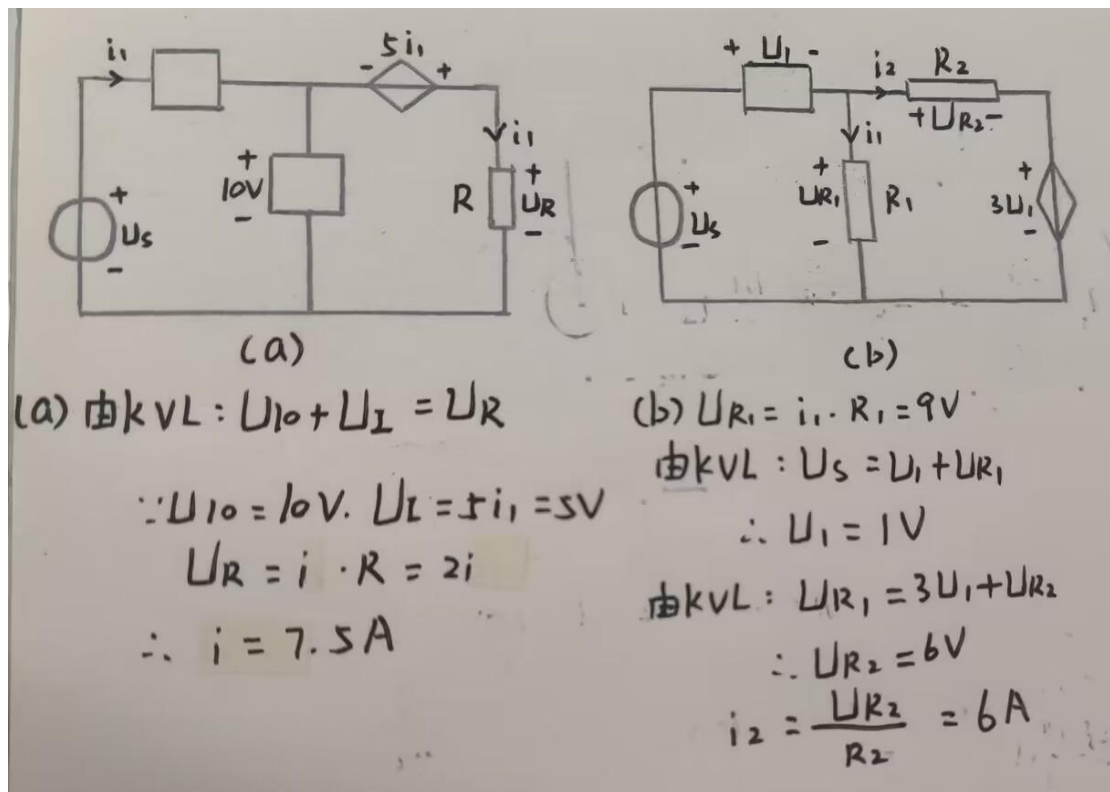 i₁ 5i₁ - +
i₁
+ 10V -
R + UR -
+ Us -
(a)
+ U₁ - i₂ R₂
+ UR₂ -
i₁
+ UR₁ - R₁
+ 3U₁ -
+ Us -
(b)
(a) 由KVL: U10+UI = UR
∵U10=10V. UI=5i₁=5V
UR = i · R = 2i
∴ i = 7.5A
(b) UR₁ = i₁ · R₁ = 9V
由KVL: Us = U₁+UR₁
∴ U₁ = 1V
由KVL: UR₁ = 3U₁+UR₂
∴ UR₂ = 6V
i₂ = UR₂/R₂ = 6A